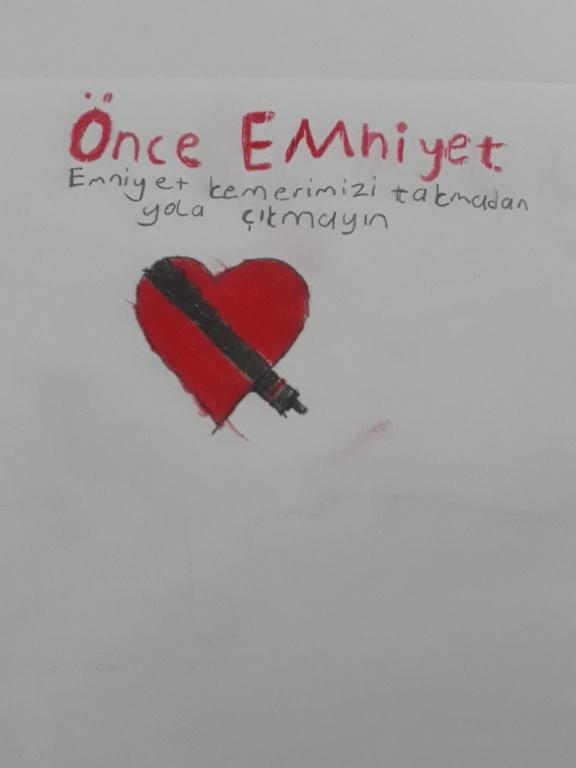 Önce EMniyet
Emniyet kemerimizi takmadan
yola çıkmayın